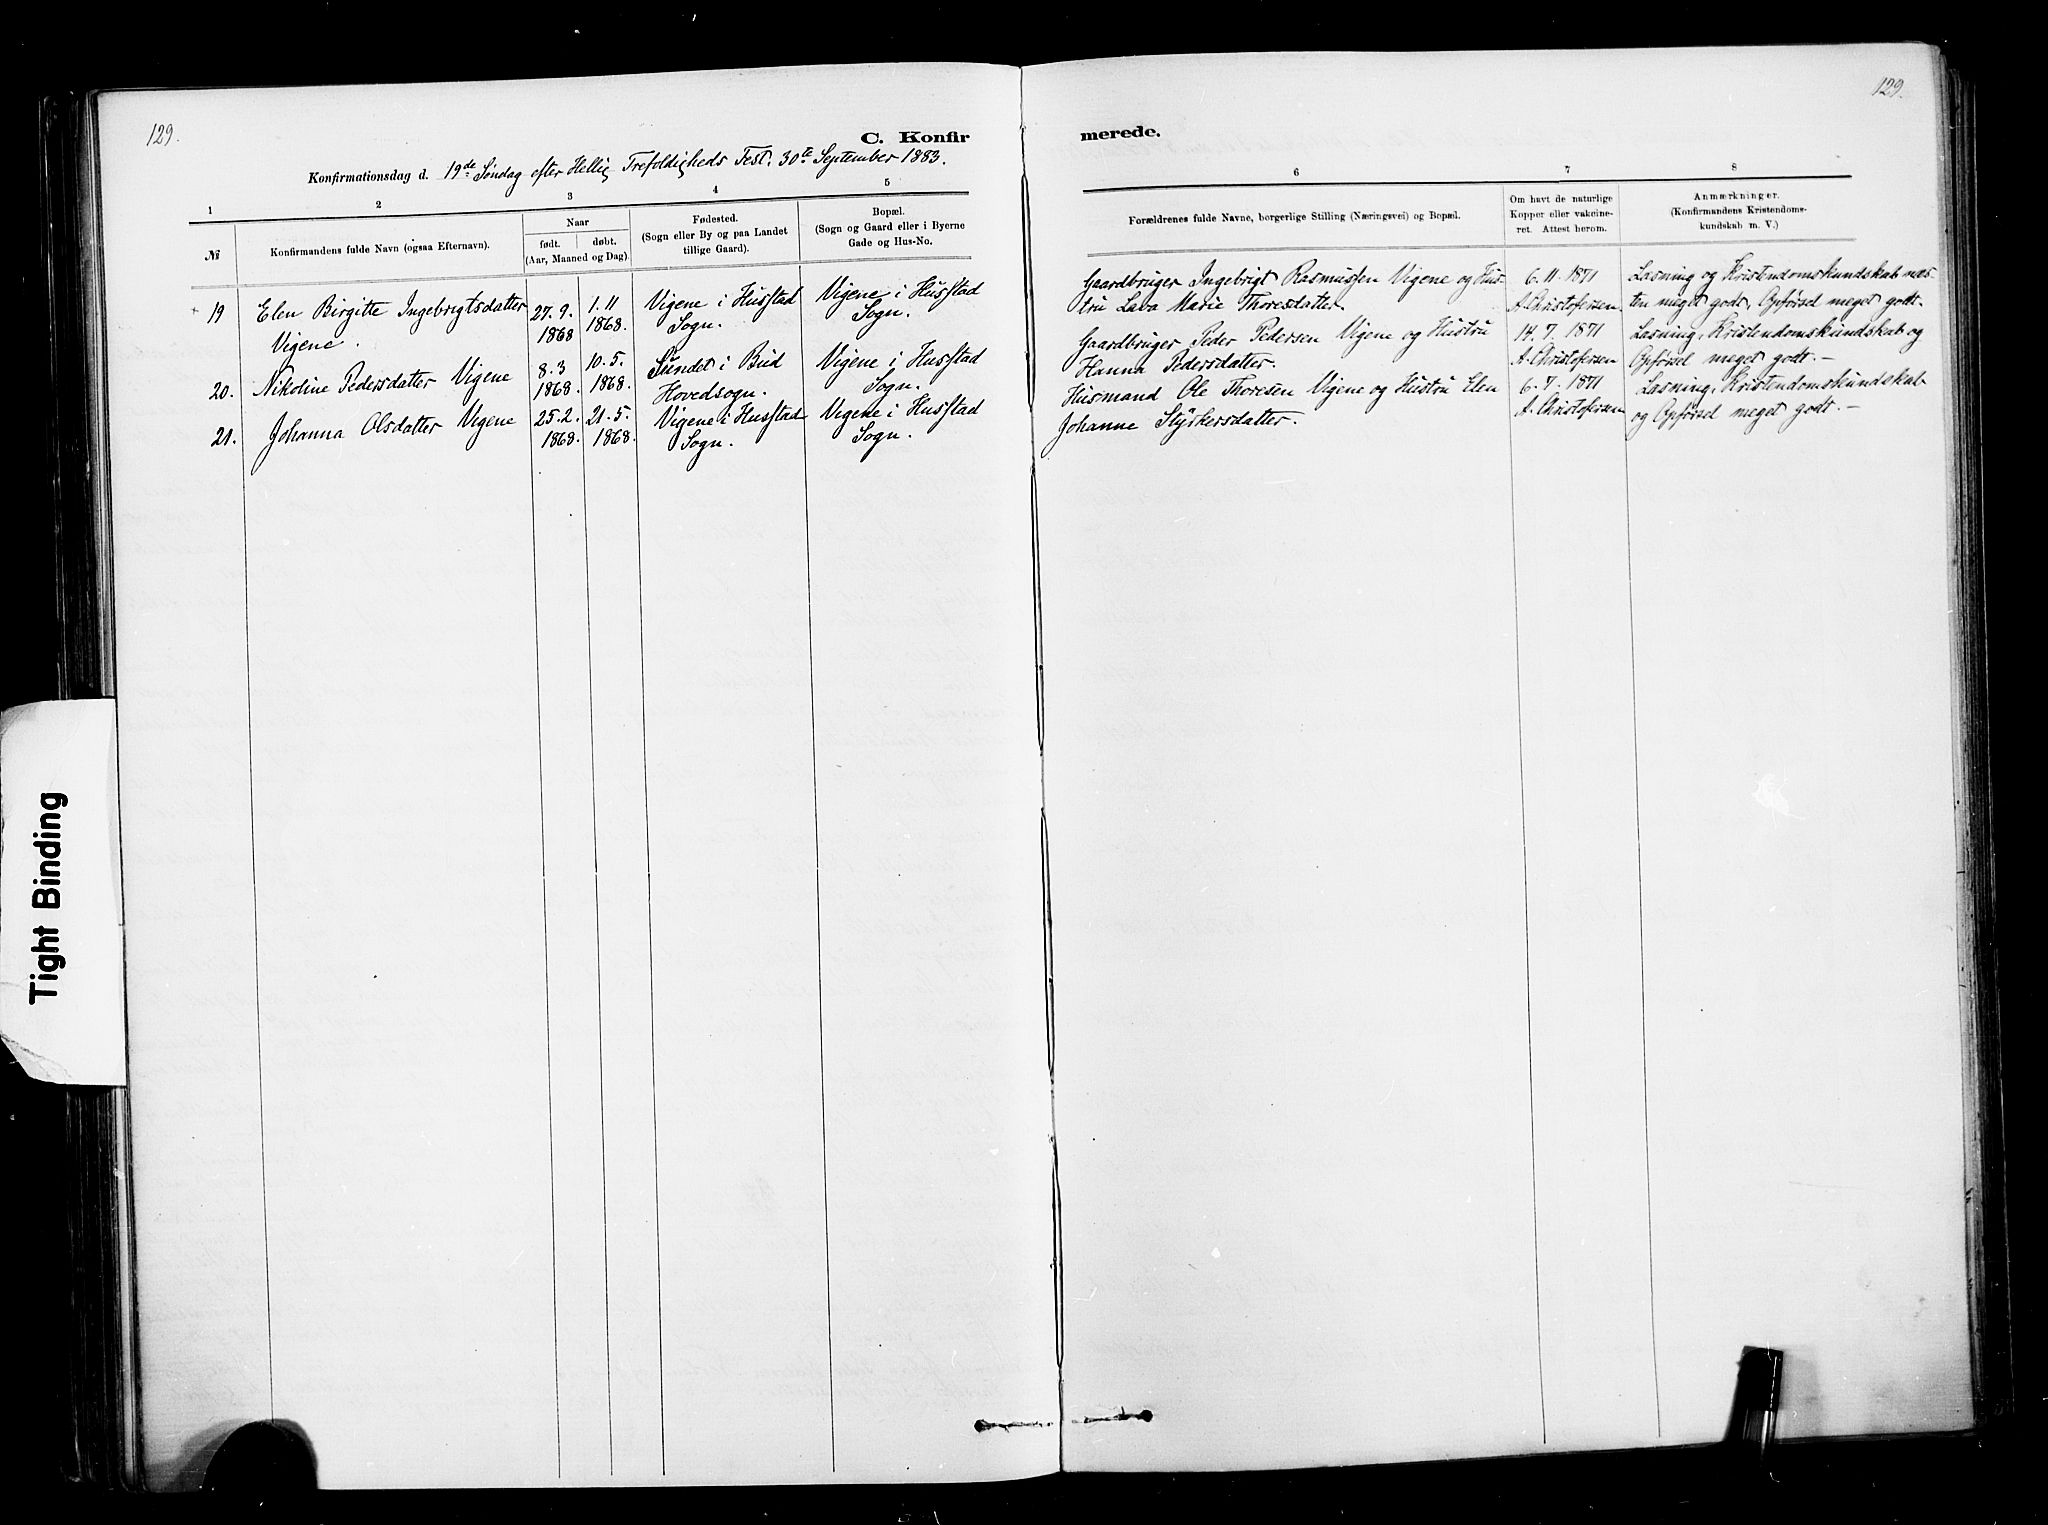 129.
C. Konfir
Konfirmationsdag d. 19de Søndag efter Hellig Trefoldigheds Fest. 30te September 1883.
1
2
3
4
5
№
Konfirmandens fulde Navn (ogsaa Efternavn).
Naar
født.
døbt.
(Aar, Maaned og Dag).
Fødested.
(Sogn eller By og paa Landet
tillige Gaard).
Bopæl.
(Sogn og Gaard eller i Byerne
Gade og Hus-No.
19 Elen Birgitte Ingebrigtsdatter 27. 9. 1. 11 Vigene i Husstad Vigene i Husstad
Vigene. 1868 1868. Sogn. Sogn.
20. Nikoline Pedersdatter Vigene 8. 3 10. 5. Sundet i Bud Vigene i Husstad
1868. 1868. Hovedsogn. Sogn.
21. Johanna Olsdatter Vigene 25. 2. 21. 5. Vigene i Husstad Vigene i Husstad
1868. 1868. Sogn. Sogn.
129.
merede.
6
7
8
Forældrenes fulde Navne, borgerlige Stilling (Næringsvei) og Bopæl.
Om havt de naturlige
Kopper eller vakcine-
ret. Attest herom.
Anmærkninger.
(Konfirmandens Kristendoms-
kundskab m. V.)
Gaardbruger Ingebrigt Rasmussen Vigene og Hus- 6. 11. 1871 Læsning og Kristendomskundskab næs-
tru Lava Marie Thoresdatter. A. Christofersen. ten meget godt, Opførsel meget godt.
Gaardbruger Peder Pedersen Vigene og Hustru 14. 7. 1871 Læsning, Kristendomskundskab og
Hanna Pedersdatter. A. Christofersen Opførsel meget godt. —
Husmand Ole Thoresen Vigene og Hustru Elen 6. 7. 1871 Læsning, Kristendomskundskab
Johanne Styrkersdatter. A. Christofersen og Opførsel meget godt. —
Tight Binding